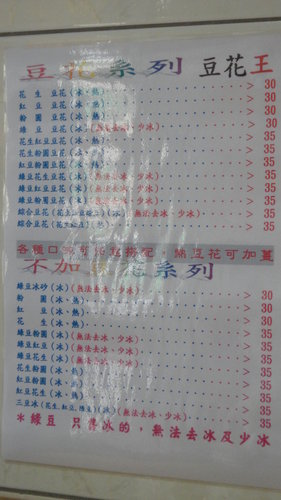 豆花系列 豆花王
花生豆花(冰·熱) > 30
紅豆豆花(冰·熱) > 30
粉圓豆花(冰·熱) > 30
綠豆豆花(冰)(無法去冰·少冰) > 30
花生紅豆豆花(冰·熱) > 35
花生粉圓豆花(冰·熱) > 35
紅豆粉圓豆花(冰·熱) > 35
綠豆花生豆花(冰)(無法去冰·少冰) > 35
綠豆紅豆豆花(冰)(無法去冰·少冰) > 35
綠豆粉圓豆花(冰)(無法去冰·少冰) > 35
綜合豆花(冰)(無法去冰·少冰) > 35
綜合豆花(冰·熱) > 35
各種口味可搭配 豆花可加薑
不加豆花系列
綠豆冰砂(冰)(無法去冰·少冰) > 30
粉圓(冰·熱) > 30
紅豆(冰·熱) > 30
花生(冰·熱) > 30
綠豆粉圓(冰)(無法去冰·少冰) > 35
綠豆紅豆(冰)(無法去冰·少冰) > 35
綠豆花生(冰)(無法去冰·少冰) > 35
花生粉圓(冰·熱) > 35
紅豆粉圓(冰·熱) > 35
花生紅豆(冰·熱) > 35
三豆冰(花生,紅豆,綠豆)(冰)(無法去冰·少冰) > 35
*綠豆 只有冰的,無法去冰及少冰